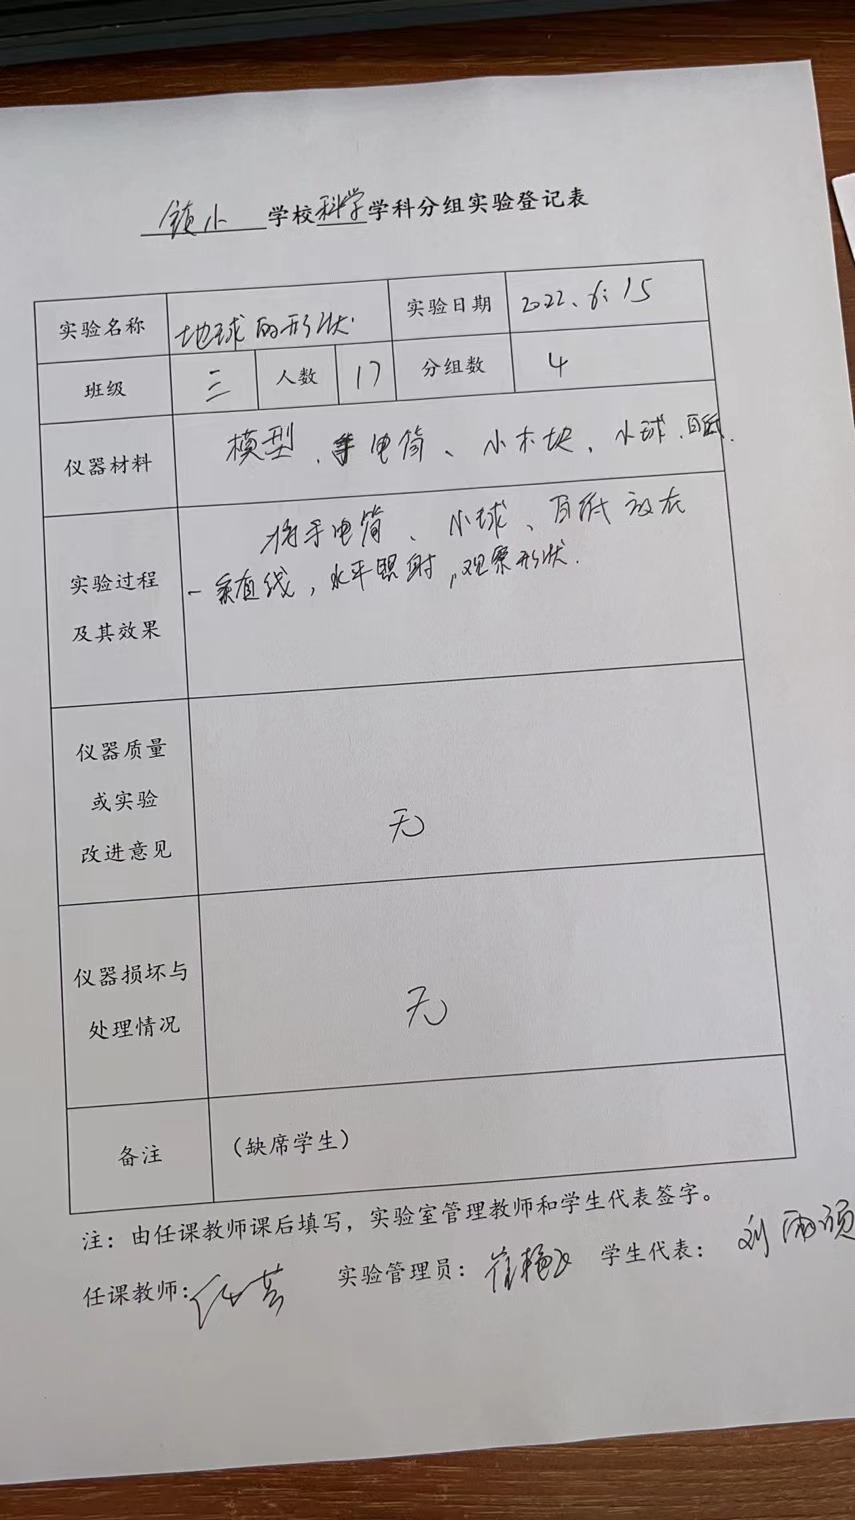 镇小 学校科学学科分组实验登记表
实验名称 地球的形状 实验日期 2022.6.15
班级 三 人数 17 分组数 4
仪器材料 模型、手电筒、小木块、小球、白纸.
实验过程及其效果 将手电筒、小球、白纸放在
一条直线，水平照射，观察形状.
仪器质量
或实验
改进意见
无
仪器损坏与
处理情况
无
备注 （缺席学生）
注：由任课教师课后填写，实验室管理教师和学生代表签字。
任课教师： 实验管理员： 学生代表：刘雨颀